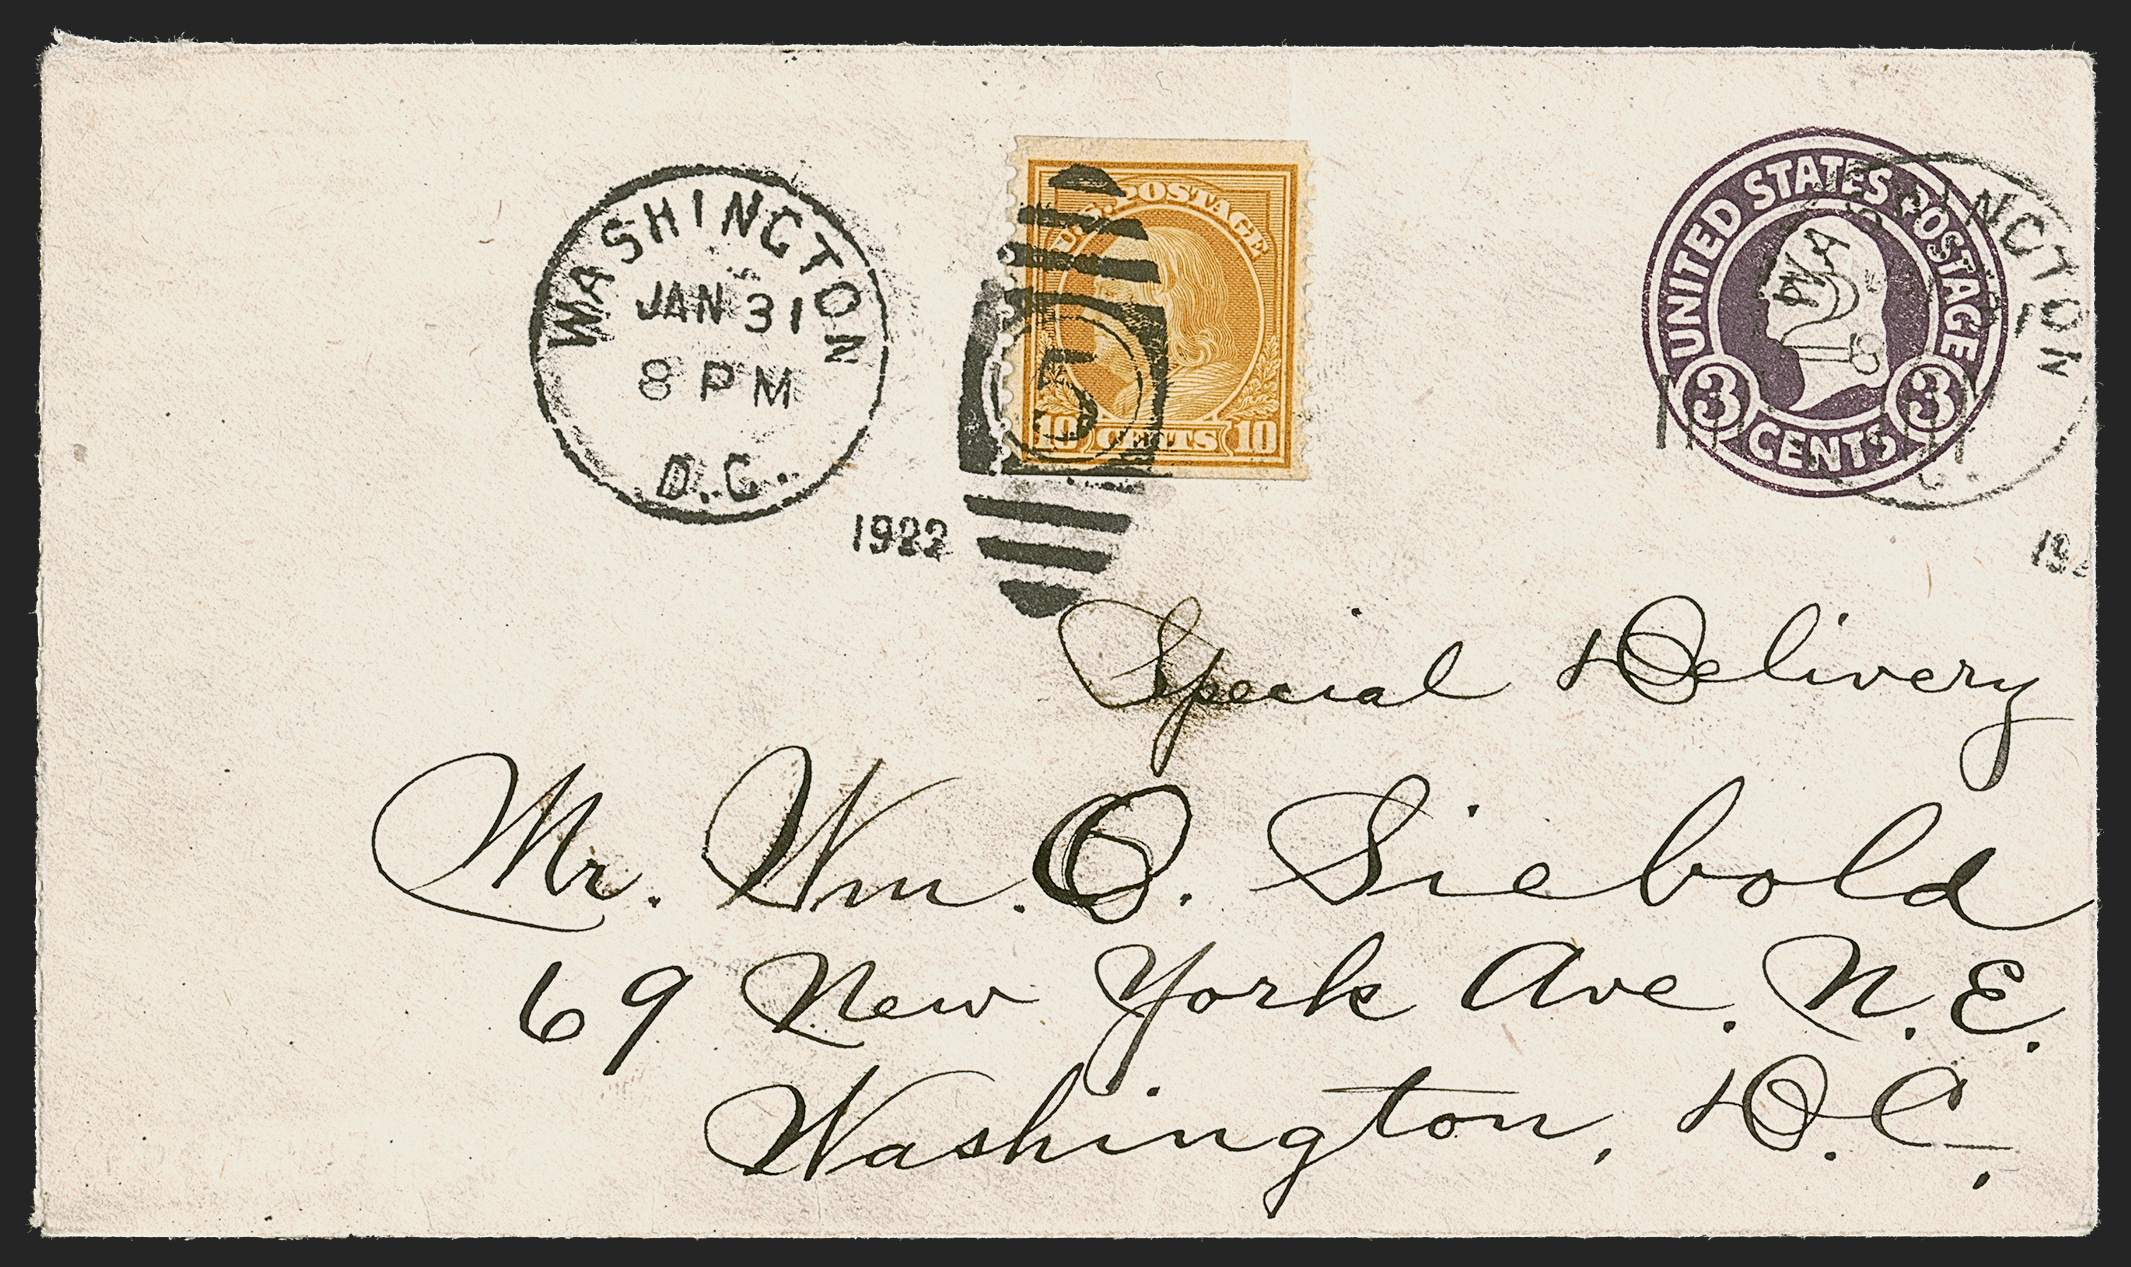 WASHINGTON
JAN 31
8 PM
D.C.
1922
U.S. POSTAGE
5
10 CENTS 10
UNITED STATES POSTAGE
3 3
CENTS
Special Delivery
Mr. Wm. O. Siebold
69 New York Ave. N.E.
Washington, D.C.